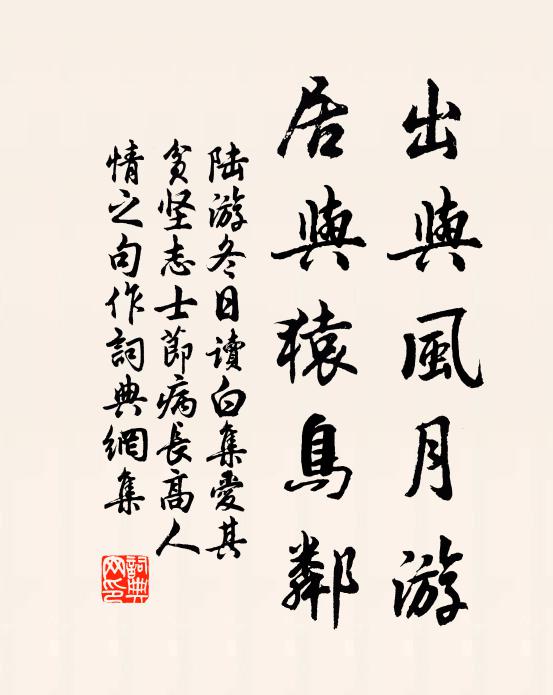 出與風月游
居與猿鳥鄰
陆游冬日读白集愛其
貧堅志士節病長高人
情之句作詞典網集
詞典
网印